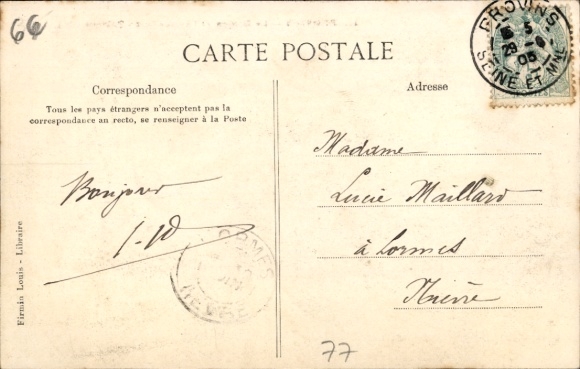 64
CARTE POSTALE
PROVINS
SEINE ET MNE
Correspondance
Tous les pays étrangers n'acceptent pas la
correspondance au recto, se renseigner à la Poste
Adresse
Bonjour
Madame
Lucie Maillard
à Lormes
Nièvre
Firmin Louis - Libraire
77